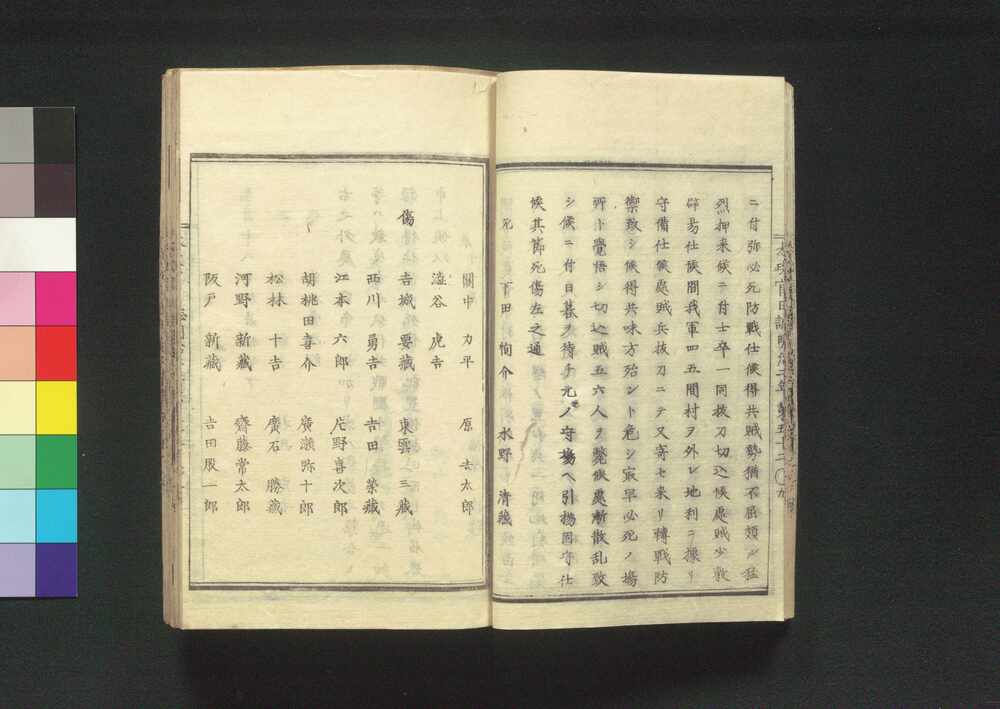 ニ付弥必死防戦仕候得共賊勢猶不屈頻ル猛
烈押来候ニ付士卒一同抜刀切込候處賊少敷
辟易仕候間我軍四五間村ヲ外レ地利ニ據リ
守備仕候處賊兵抜刀ニテ又寄セ来リ轉戦防
禦致シ候得共味方殆ント危シ最早必死ノ場
所ト覺悟シ切込賊五六人ヲ斃候處漸散乱致
シ候ニ付日暮ヲ待チ元ノ守場ヘ引揚固守仕
候其節死傷左之通
死 下田恂介 水野清藏
關中力平 原吉太郎
澁谷虎吉
傷 吉城要藏 東雲三藏
西川勇吉 吉田榮藏
江本六郎 片野喜次郎
胡桃田喜介 廣瀬弥十郎
松林十吉 廣石勝藏
河野新藏 齋藤常太郎
阪戸新藏 吉田殿一郎